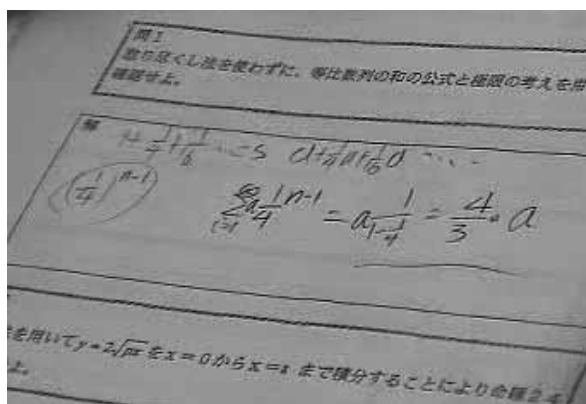 問1
取り尽くし法を使わずに、等比数列の和の公式と極限の考えを用
確認せよ。
解
1+1/4+1/16 ... = S a+1/4a+1/16a ....
(1/4)^{n-1}
∞∑i=1 a 1/4^{n-1} = a 1/(1-1/4) = 4/3 · a
を用いてy=2√pxをx=0からx=xまで積分することにより命題2.4
よ。